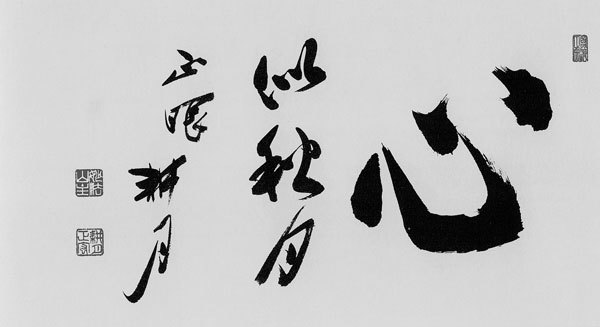 心
似秋月
正眼 耕月